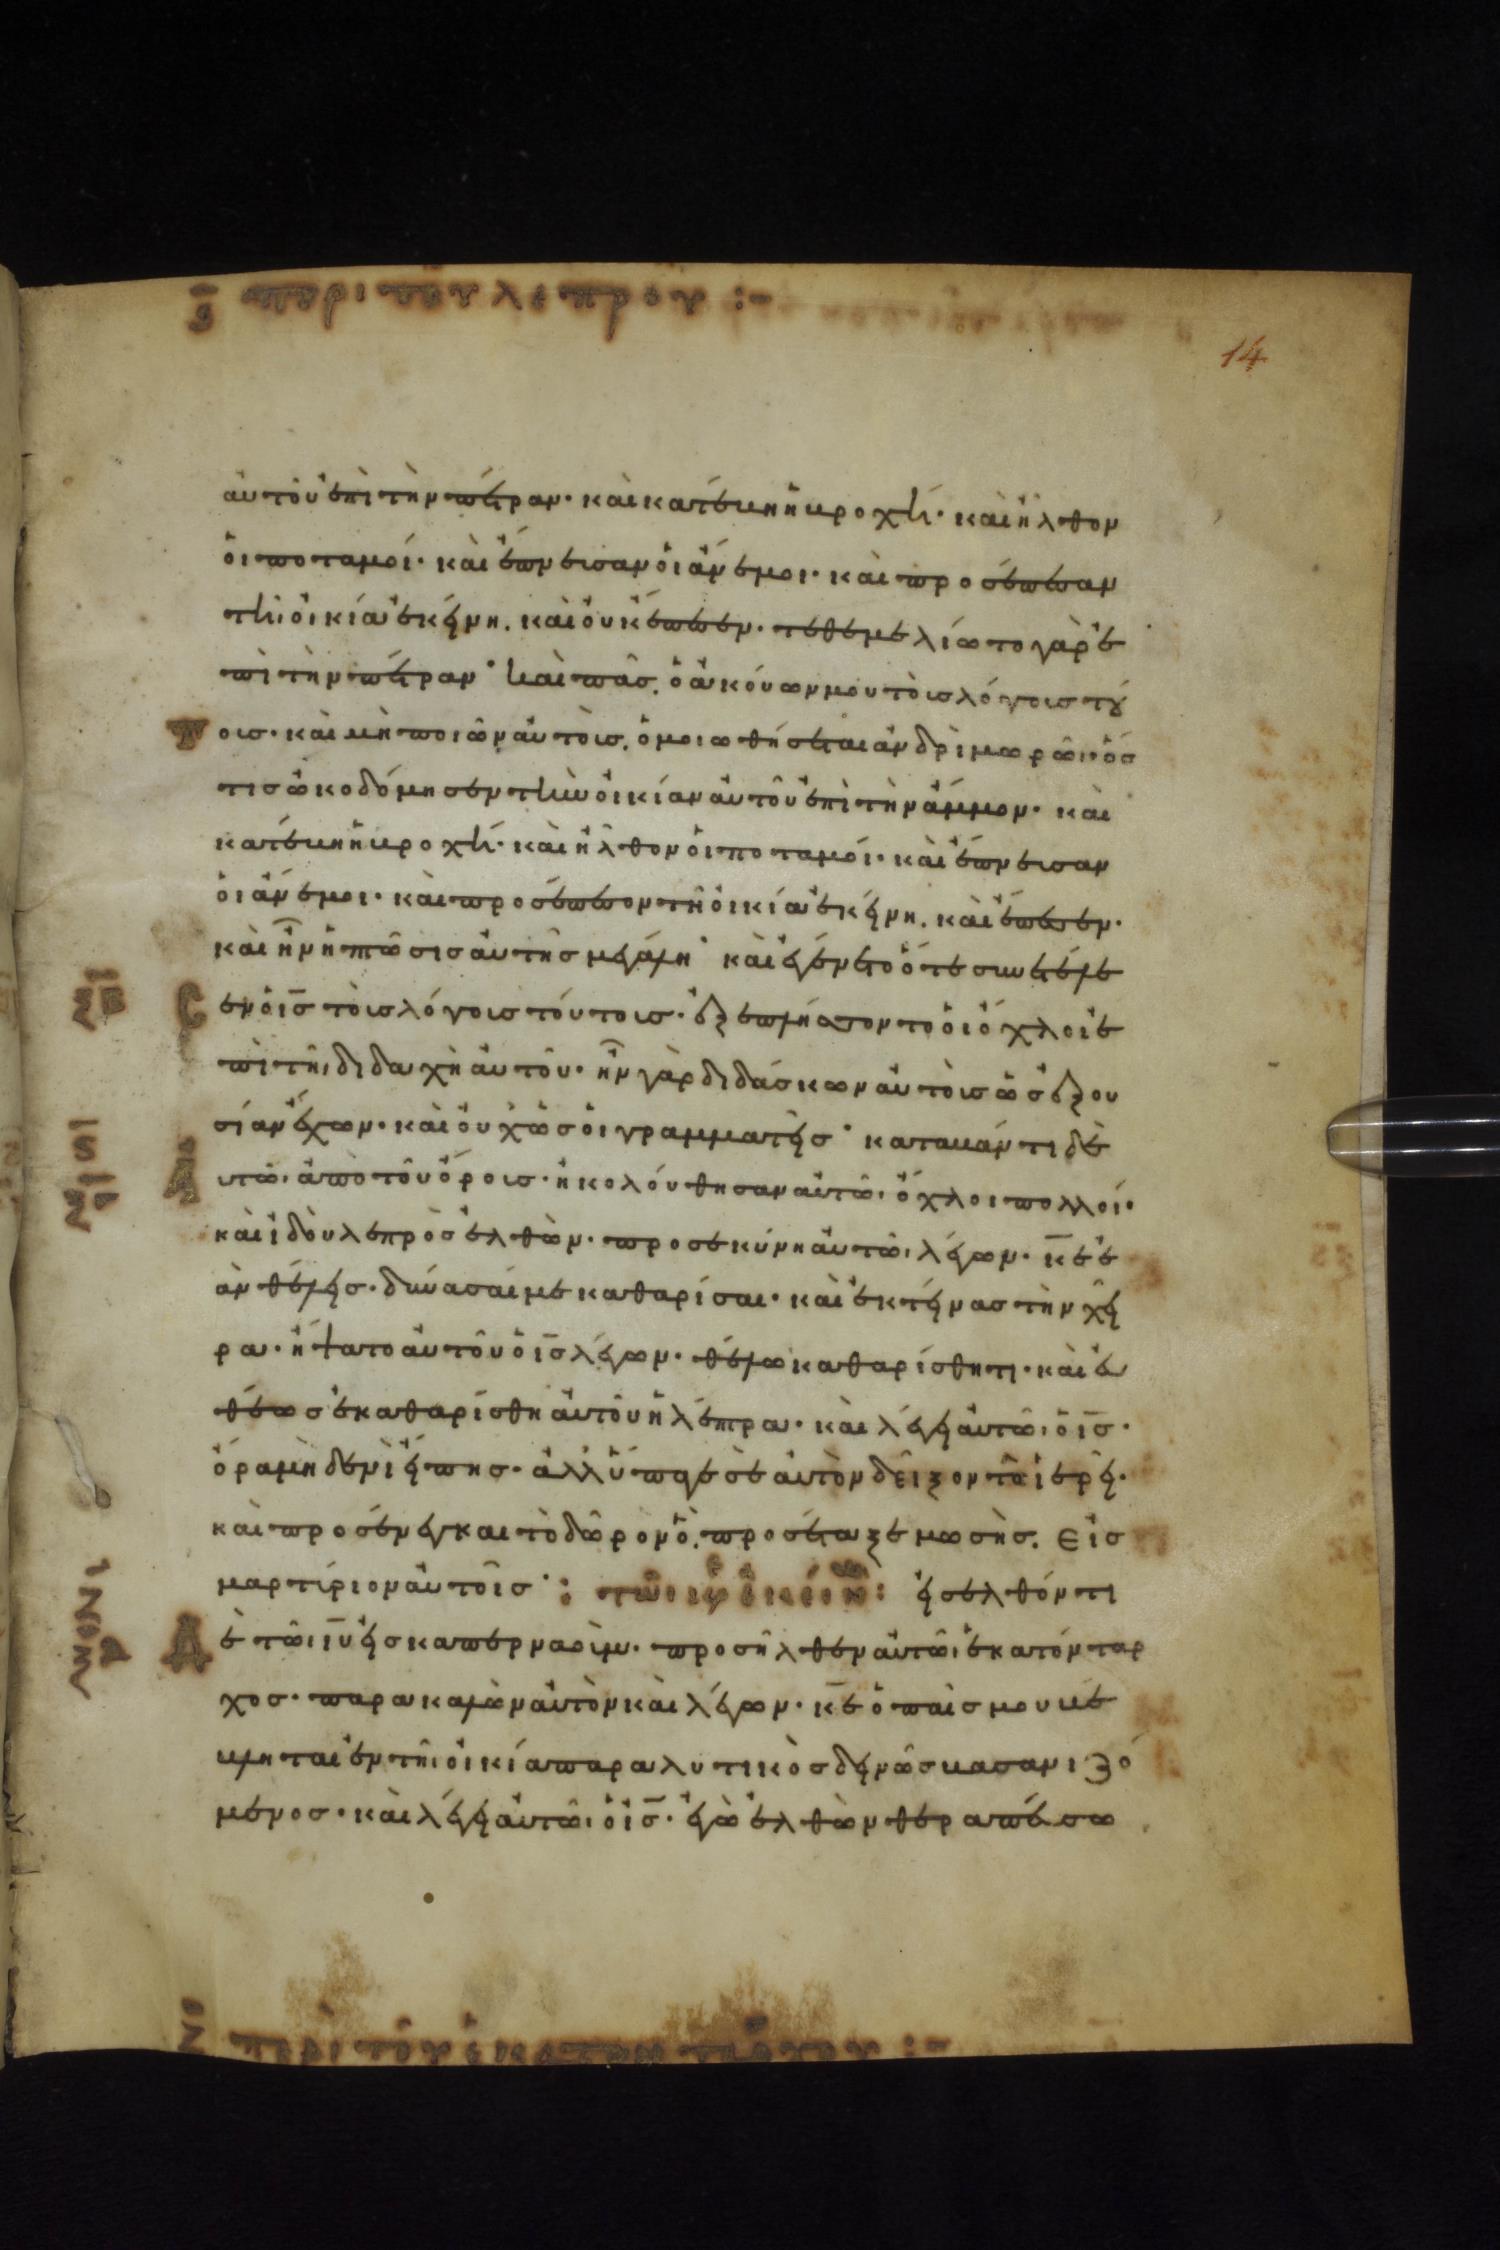 ϛ περι του λεπρου :-
14
αυτοῦ ἐπὶ τὴν πέτραν· καὶ κατέβη ἡ βροχή· καὶ ἦλθον
ὁι ποταμοί· καὶ ἔπνευσαν ὁι ἄνεμοι· καὶ προσέπεσαν
τῆ οἰκία ἐκείνη. καὶ ὀυκ έπεσεν· τεθεμελίωτο γὰρ ἐ
πὶ τὴν πέτραν· καὶ πᾶσ. ὁ ἀκόυων μου τὸισ λόγοισ τού
τοισ· καὶ μὴ ποιῶν αὐτὸισ. ὁμοιωθήσεται ἀνδρὶ μωρῶ· ὅσ
τισ ὠκοδόμησεν τὴν ὀικίαν αὐτοῦ ἐπὶ τὴν ἄμμον· καὶ
κατέβη ἡ βροχή· καὶ ἦλθον ὁι ποταμόι· καὶ ἔπνευσαν
ὁι ἄνεμοι· καὶ προσέπεσον τῆ ὀικία ἐκείνη. καὶ ἔπεσεν·
καὶ ἦν ἡ πτῶσισ αὐτῆσ μεγάλη· καὶ ἐγένετο ὅτε συνετέλε
σεν ὁ ισ τὸισ λόγοισ τόυτοισ· ἐξεπλήσσοντο ὁι ὄχλοι ἐ
πὶ τῆ διδαχῆ αὐτοῦ· ἦν γὰρ διδάσκων αὐτὸισ ὡσ ἐξου
σίαν ἔχων· καὶ ὀυχ ὡσ ὁι γραμματεῖσ· καταβάντι δὲ
αυτῶ· ἀπὸ τοῦ ὄροισ· ἠκολόυθησαν αυτῶ· ὄχλοι πολλοί·
καὶ ἰδοὺ λεπρὸσ ἐλθὼν· προσεκύνη αὐτῶ· λέγων· κε ἐ
ὰν θέλεισ· δύνασαί με καθαρίσαι· καὶ ἐκτείνασ τὴν χεῖ
ρα· ἥψατο αὐτοῦ ὁ ισ λέγων· θέλω καθαρίσθητι· καὶ ἐυ
θέωσ ἐκαθαρίσθη αὐτοῦ ἡ λέπρα· καὶ λέγει αὐτῶ· ὁ ισ·
ὅρα μὴδενὶ εἴπησ· ἀλλ' ὕπαγε σὲ αὐτὸν δεῖξον τῶ ἱερεῖ·
καὶ προσένεγκαι τὸ δῶρον ὃ. προσέταξε μωσὴσ. Εἰσ
μαρτίριον αὐτοῖσ· : εἰσελθόντι
Δ ὲ τῶ ιυ εἰσ καπερναοὺμ· προσῆλθεν αὐτῶ· ἑκατόνταρ
χοσ· παρακαλὼν αὐτὸν καὶ λέγων· κε ὁ παὶσ μου βέ
βληται ἐν τῆ οἰκία παραλυτικὸσ δεινῶσ βασανιζό
μενοσ· καὶ λέγει αὐτῶ· ὁ ισ· ἐγὼ ἐλθὼν θεραπέυσω
ζ περὶ τοῦ ἑκατοντάρχου :-